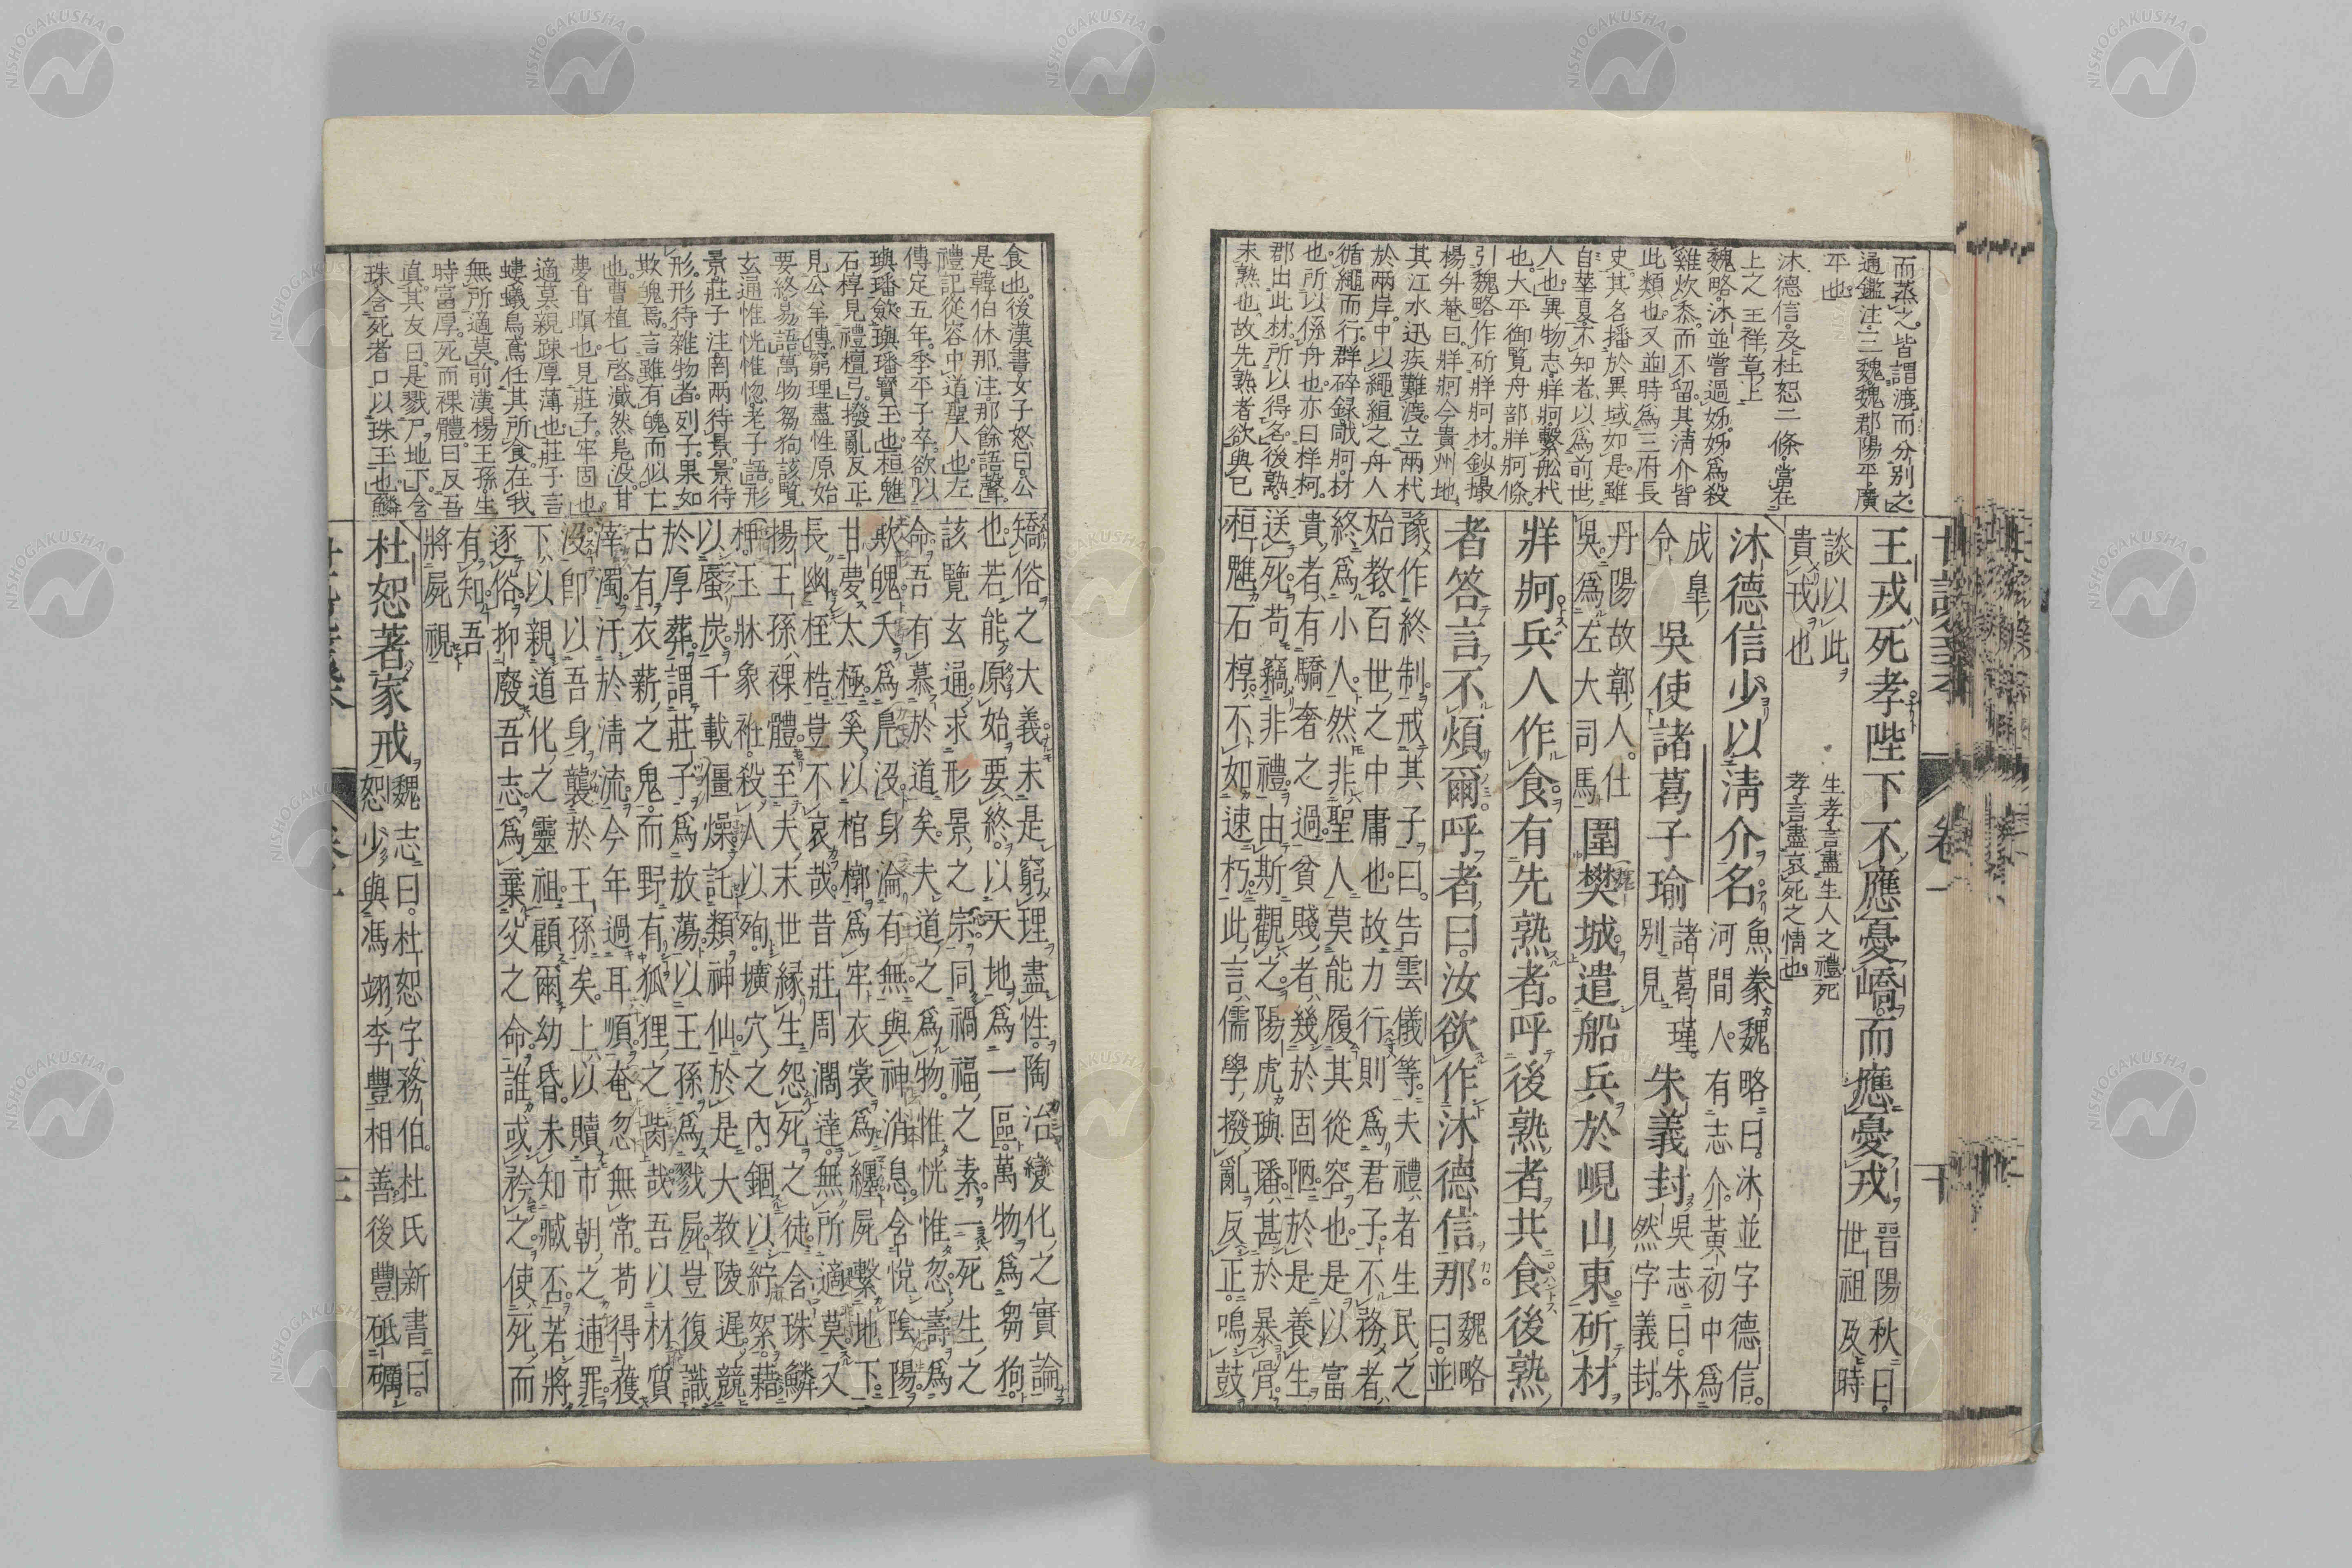 而蒸之。皆謂漉而分別之
通鑑注三魏魏郡陽平廣
平也
沐德信及杜恕二條當在
上之王祥章上
魏略沐並嘗過姊姊爲殺
雞炊黍而不留其清介皆
此類也又並時爲三府長
史其名播於異域如是雖
自華夏不知者以爲前世
人也異物志牂牁繫舩杙
也大平御覽舟部牂牁條
引魏略作斫牂牁材鈔撮
楊升菴曰牂牁今貴州地
其江水迅疾難渡立兩杙
於兩岸中以繩絙之舟人
循繩而行群碎録戙牁材
也所以係舟也亦曰样柯
郡出此材所以得名後熟
未熟也故先熟者欲與已
王戎死孝陛下不應憂嶠而應憂戎 晉陽秋曰
世祖及時
談以此 生孝言盡生人之禮死
貴戎也 孝言盡哀死之情也
沐德信少以淸介名 魚豢魏略曰沐並字德信
河間人有志介黃初中爲
成皐
令 吳使諸葛子瑜 諸葛瑾
別見 朱義封 吳志曰朱
然字義封
丹陽故鄣人仕
吳爲左大司馬 圍樊城遣船兵於峴山東斫材
牂牁兵人作食有先熟者呼後熟者共食後熟
者答言不煩爾呼者曰汝欲作沐德信那 魏略
曰並
豫作終制戒其子曰告雲儀等夫禮者生民之
始敎百世之中庸也故力行則爲君子不務者
終爲小人然非聖人莫能履其從容也是以富
貴者有驕奢之過貧賤者幾於固陋於是養生
送死苟竊非禮由斯觀之陽虎璵璠甚於暴骨
桓魋石椁不如速朽此言儒學撥亂反正鳴鼓
食也後漢書女子怒曰公
是韓伯休那注那餘語聲
禮記從容中道聖人也左
傳定五年季平子卒欲以
璵璠斂璵璠寶玉也桓魋
石椁見禮檀弓撥亂反正
見公羊傳窮理盡性原始
要終易語萬物芻狗該覽
玄通惟恍惟惚老子語形
景莊子注罔兩待景景待
形形待雜物者列子果如
欺魄焉言雖有魄而似亡
也曹植七啓溘然鳧沒甘
夢甘瞑也見莊子牢固也
適莫親踈厚薄也莊子言
螻蟻鳥鳶任其所食在我
無所適莫前漢楊王孫生
時富厚死而裸體曰反吾
眞其友曰是戮尸地下含
珠含死者口以珠玉也鱗
矯俗之大義未是窮理盡性陶冶變化之實論
也若能原始要終以天地爲一區萬物爲芻狗
該覽玄通求形景之宗同禍福之素一死生之
命吾有慕於道矣夫道之爲物惟恍惟忽壽爲
欺魄夭爲鳧沒身淪有無與神消息含悅陰陽
甘夢太極奚以棺槨爲牢衣裳爲纏屍繫地下
長幽桎梏豈不哀哉昔莊周濶達無所適莫又
揚王孫裸體至夫末世緣生怨死之徒含珠鱗
柙玉牀象衽殺人以殉壙穴之內錮以紵絮藉
以蜃炭千載僵燥託類神仙於是大敎陵遲競
於厚葬謂莊子爲放蕩以王孫爲戮屍豈復識
古有衣薪之鬼而野有狐狸之胔哉吾以材質
滓濁汙於淸流今年過耳順奄忽無常苟得獲
沒卽以吾身襲於王孫矣上以贖市朝之逋罪
下以親道化之靈祖顧爾幼昏未知臧否若將
逐俗抑廢吾志爲棄父之命誰或矜之使死而
有知吾
將屍視
杜恕著家戒 魏志曰杜恕字務伯杜氏新書曰
恕少與馮翊李豐相善後豐砥礪